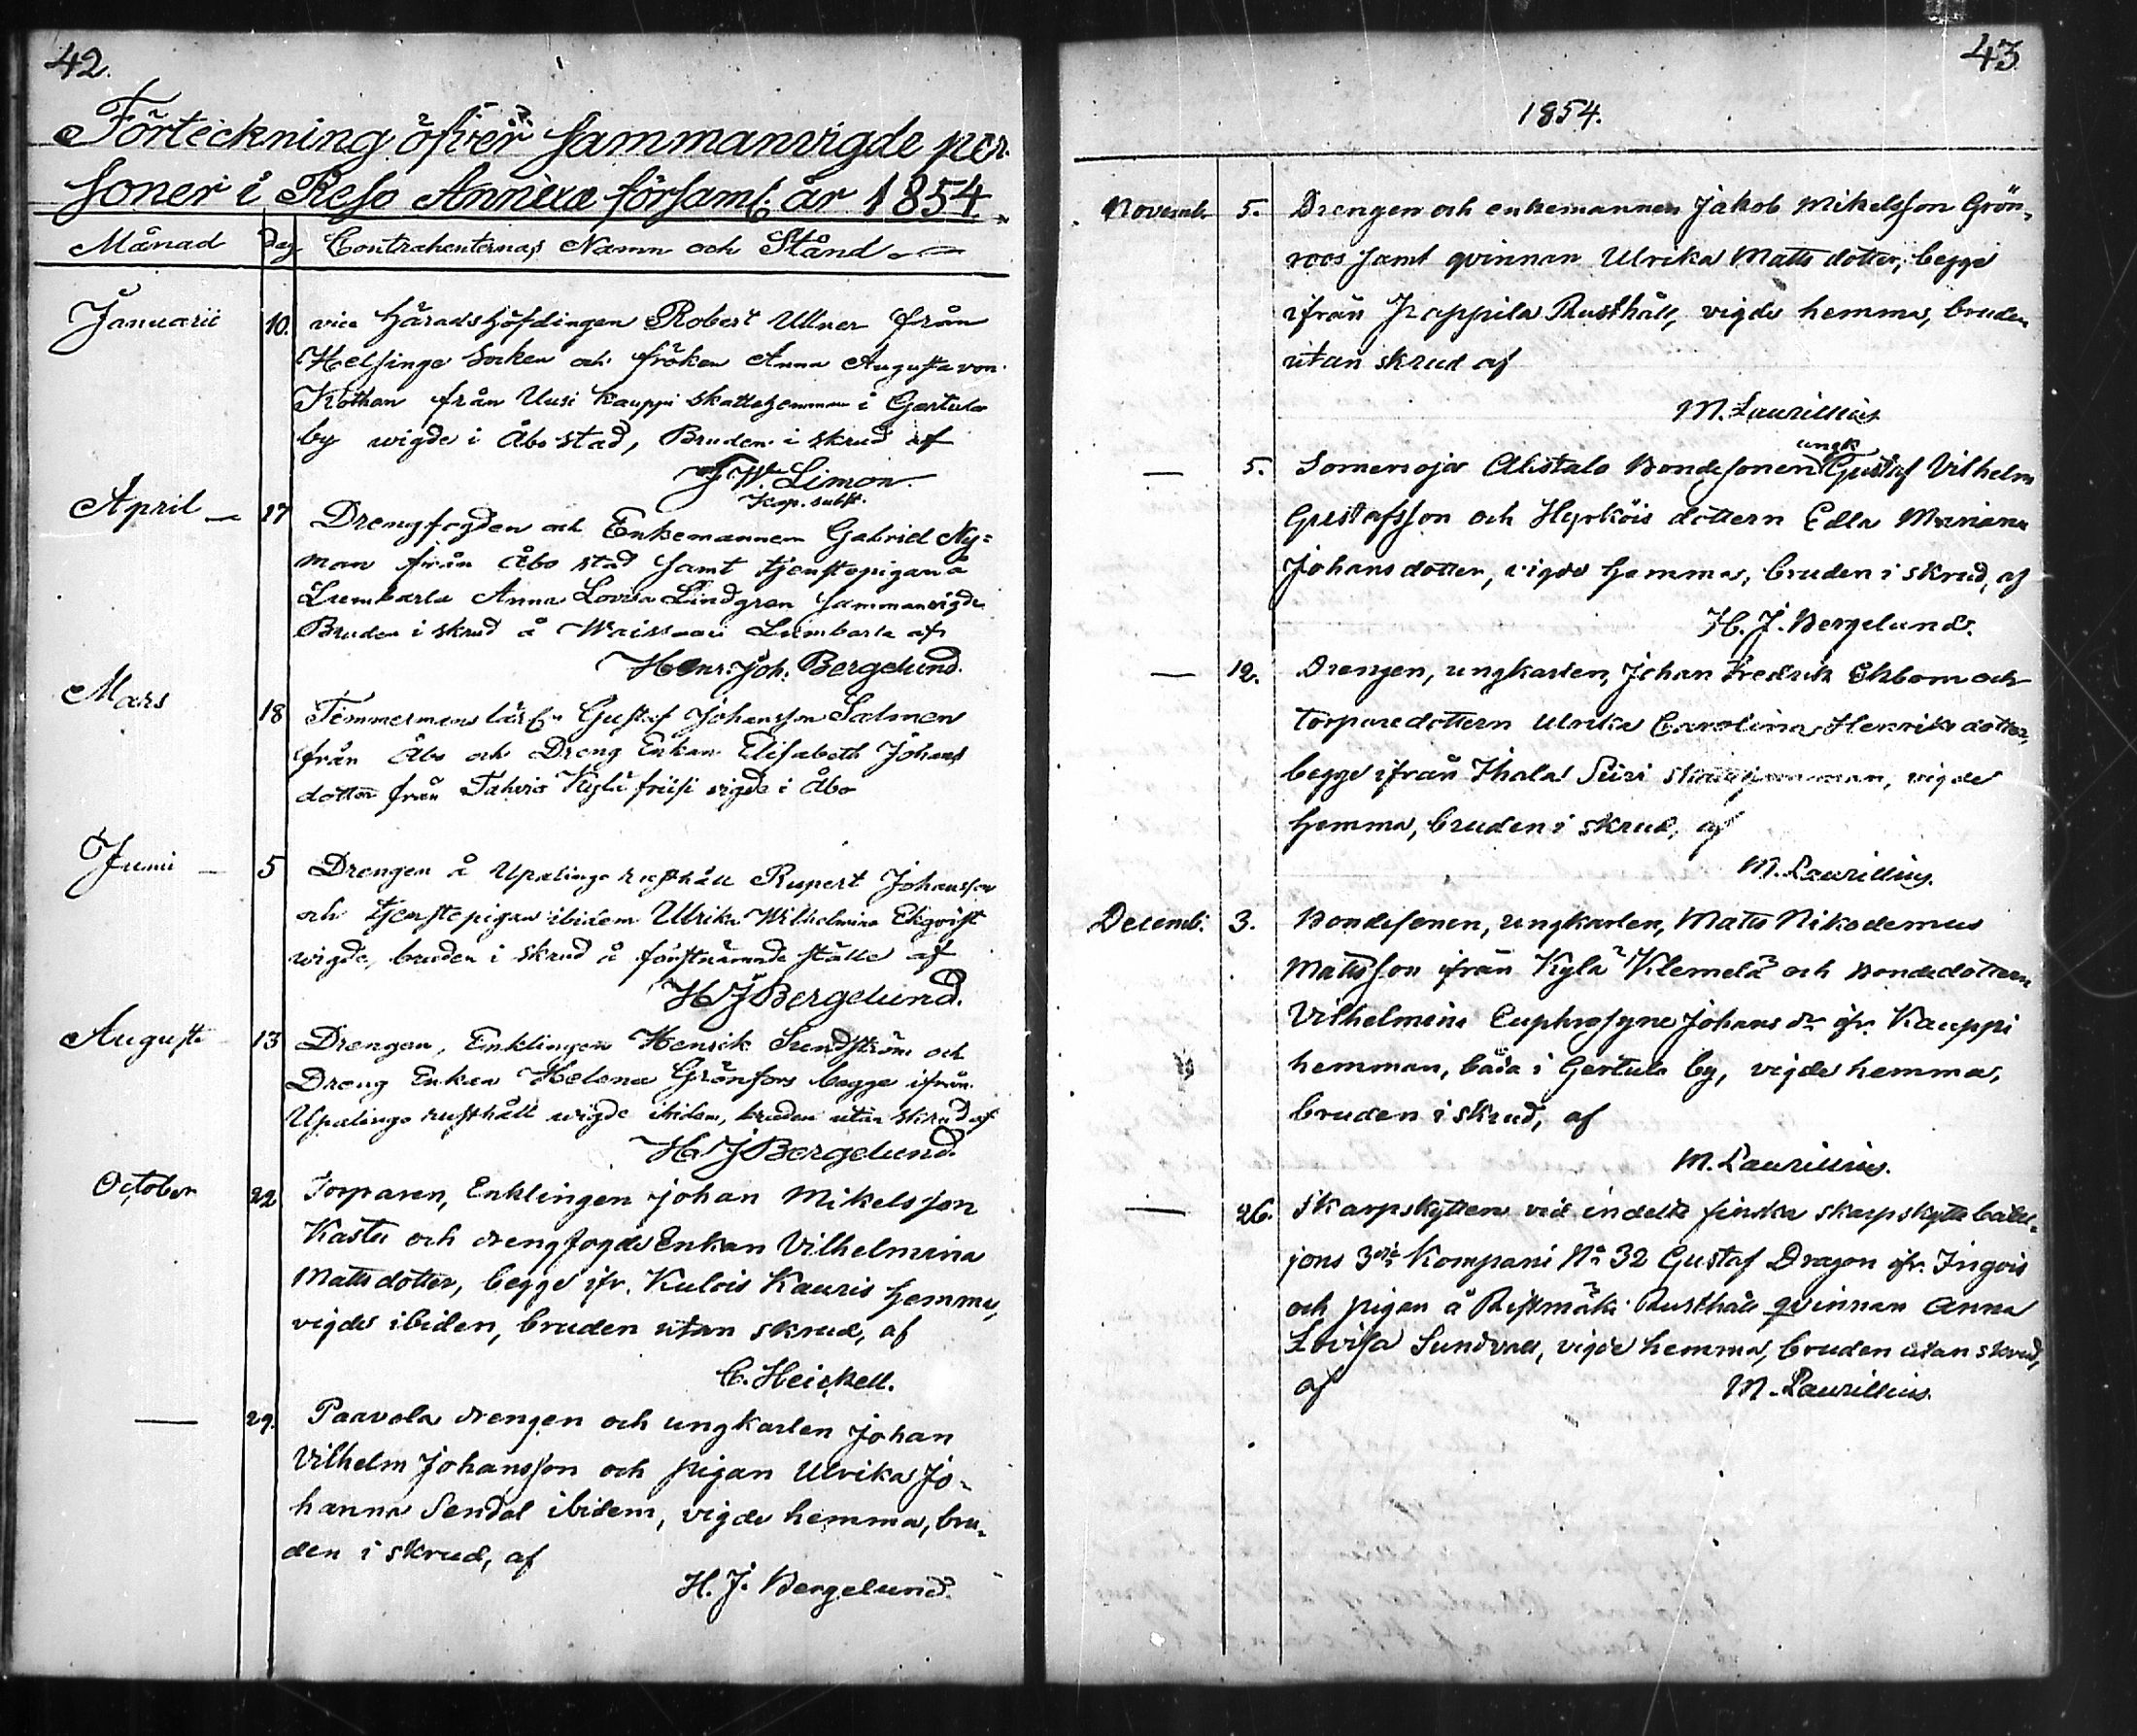 42.
Förteckning öfver sammanvigde per-
soner i Reso Annexe församl. år 1854.
Månad Dag Contrahenternas Namn och Stånd
Januarii 10. vice Häradshöfdingen Robert Ullner från
Helsinge Socken och fröken Anna Augusta von
Kothen från Uusi Kauppi skattehemman i Gertula
by wigde i Åbo stad, Bruden i skrud af
F. W. Limon.
Kap. subst.
April 17 Drengfogden och Enkemannen Gabriel Ny=
man från Åbo stad samt tjenstepigan å
Lumbarla Anna Lovisa Lindgren sammanvigde
Bruden i skrud å Lumbarla af
Henr. Joh. Bergelund.
Mars 18 Timmermans Gustaf Johansson Salmen
från Åbo och Dreng Enkan Elisabeth Johans
dotter från Tahvio Kylä vigde i Åbo
Junii 5 Drengen å Upalinge rusthåll Rupert Johansson
och tjenstepigan ibidem Ulrika Wilhelmina Ekqvist
wigde, bruden i skrud å förstnämnde ställe af
H J Bergelund.
Augusti 13 Drengen, Enklingen Henrik Sundström och
Dreng Enkan Helena Grönfors begge ifrån
Upalinge rusthåll wigde ibidem, bruden utan skrud af
H J Bergelund.
October 22 Torparen, Enklingen Johan Mikelsson
Kastu och drengfogde Enkan Vilhelmina
Mattsdotter, begge ifr. Kulois Kauris hemma,
vigde ibidem, bruden utan skrud, af
C. Heickell.
— 29. Paavola drengen och ungkarlen Johan
Vilhelm Johansson och pigan Ulrika Jo-
hanna Sendal ibidem, vigde hemma, bru-
den i skrud, af
H. J. Bergelund.
43
1854.
Novemb. 5. Drengen och enkemannen Jakob Mikelsson Grön-
roos samt qvinnan Ulrika Matts dotter, begge
ifrån Pappila Rusthåll, vigde hemma, bruden
utan skrud af
M. Laurillius
— 5. Somersoja Alistalo Bondesonen ungk Gustaf Vilhelm
Gustafsson och Hyrköis dottern Edla Mariana
Johans dotter, vigde hemma, bruden i skrud, af
H. J. Bergelund.
— 12. Drengen, ungkarlen, Johan Fredrik Ekbom och
torparedottern Ulrika Carolina Henriks dotter,
begge ifrån Ihala Siiri skattehemman, vigde
hemma, bruden i skrud, af
M. Laurillius.
Decemb. 3. Bondesonen, ungkarlen, Matts Nikodemus
Mattsson ifrån Kylä Klemelä och bondedottern
Vilhelmina Euphrosyne Johans dr ifr. Kauppi
hemman, båda i Gertula by, vigde hemma,
bruden i skrud, af
M. Laurillius.
— 26. Skarpskytten vid indelta finska skarpskytte batal-
jons 3dje Kompani No 32 Gustaf Dragon ifr. Ingois
och pigan å Ristimäki Rusthåll qvinnan Anna
Lovisa Sundvall, vigde hemma, bruden utan skrud,
af M. Laurillius.